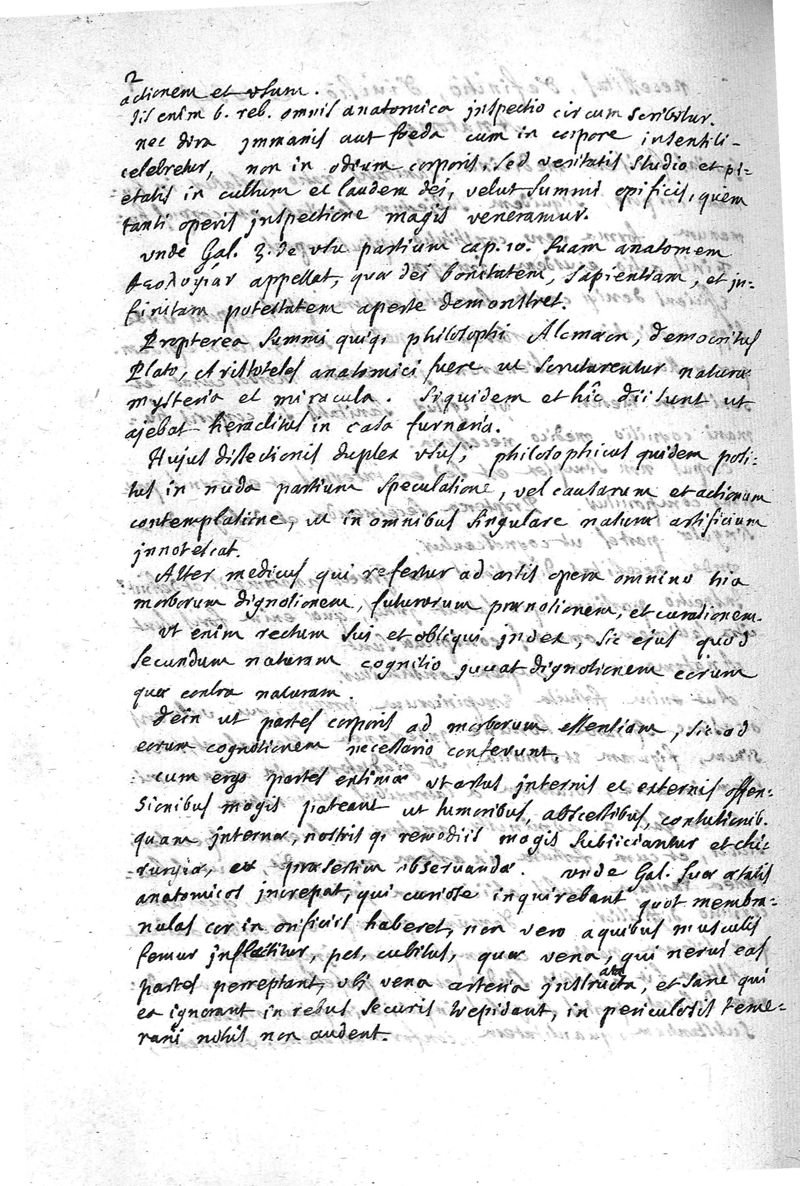 2
actionem et usum.
His enim 6. reb. omnis anatomica inspectio circumscribitur.
nec dira immanis aut foeda cum in corpore insensili
celebretur, non in odium corporis, sed veritatis studio et pi=
etatis in cultum et laudem dei, velut summi opificis, quem
tanti operis inspectione magis veneramur.
unde Gal. 3. de usu partium cap. 10. suam anatomem
θεολογίαν appellat, quae dei bonitatem, sapientiam, et in=
finitam potestatem aperte demonstret.
Propterea summi quiq; philosophi Alcmaeon, democritus
Plato, Aristoteles anatomici fuere ut scrutarentur naturae
mysteria et miracula. Siquidem et hîc dii sunt ut
ajebat heraclitus in casa furnaria.
Hujus dissectionis duplex usus; philosophicus quidem posi=
tus in nuda partium speculatione, vel causarum et actionum
contemplatione, ut in omnibus singulare naturae artificium
innotescat.
Alter medicus qui refertur ad artis opera omnino tria
morborum dignotionem, futurorum praenotionem, et curationem.
ut enim rectum sui et obliqui index, sic ejus quod
secundum naturam cognitio juvat dignotionem eorum
quae contra naturam.
dein ut partes corporis ad morborum essentiam, sic ad
eorum cognotionem necessario conferunt.
cum ergo partes extimae ut artus internis et externis offen=
sionibus magis pateant ut tumoribus, abscessibus, contusionib.
quam internae, nostris q; remediis magis subiiciantur et chi
rurgiae, ex praesertim observandae. unde Gal. suae aetatis
anatomicos increpat, qui curiose inquirebant quot membra=
nulas cor in orificiis haberet, non vero a quibus musculis
femur inflectitur, pes, cubitus, quae vena, qui nervus eas
partes perreptant, ubi vena arteria instructa, et sane qui
ea ignorant in rebus securis trepidant, in periculosis teme=
rarii nihil non audent.